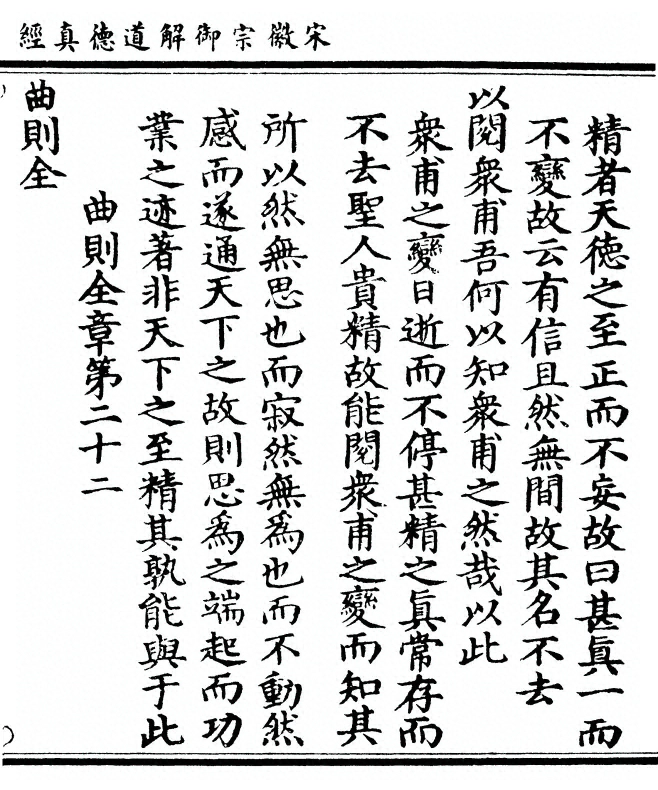 宋徽宗御解道德真經
精者天徳之至正而不妄故曰甚眞一而
不變故云有信且然無間故其名不去
以閱衆甫吾何以知衆甫之然哉以此
衆甫之變日逝而不停甚精之眞常存而
不去聖人貴精故能閱衆甫之變而知其
所以然無思也而寂然無為也而不動然
感而遂通天下之故則思為之端起而功
業之迹著非天下之至精其孰能與于此
曲則全章第二十二
曲則全